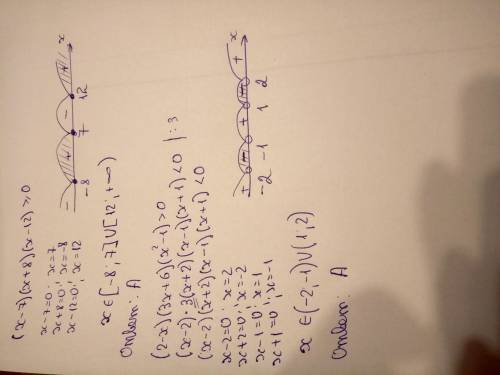 (x-7)(x+8)(x-12) ≥ 0
x-7=0; x=7
x+8=0; x=-8
x-12=0; x=12
- + - + x
-8 7 12
x ∈ [-8; 7] ∪ [12; +∞)
Ответ: А
(2-x)(3x+6)(x²-1) > 0
(x-2)·3(x+2)(x-1)(x+1) < 0 | :3
(x-2)(x+2)(x-1)(x+1) < 0
x-2=0; x=2
x+2=0; x=-2
x-1=0; x=1
x+1=0; x=-1
+ - + - + x
-2 -1 1 2
x ∈ (-2; -1) ∪ (1; 2)
Ответ: А